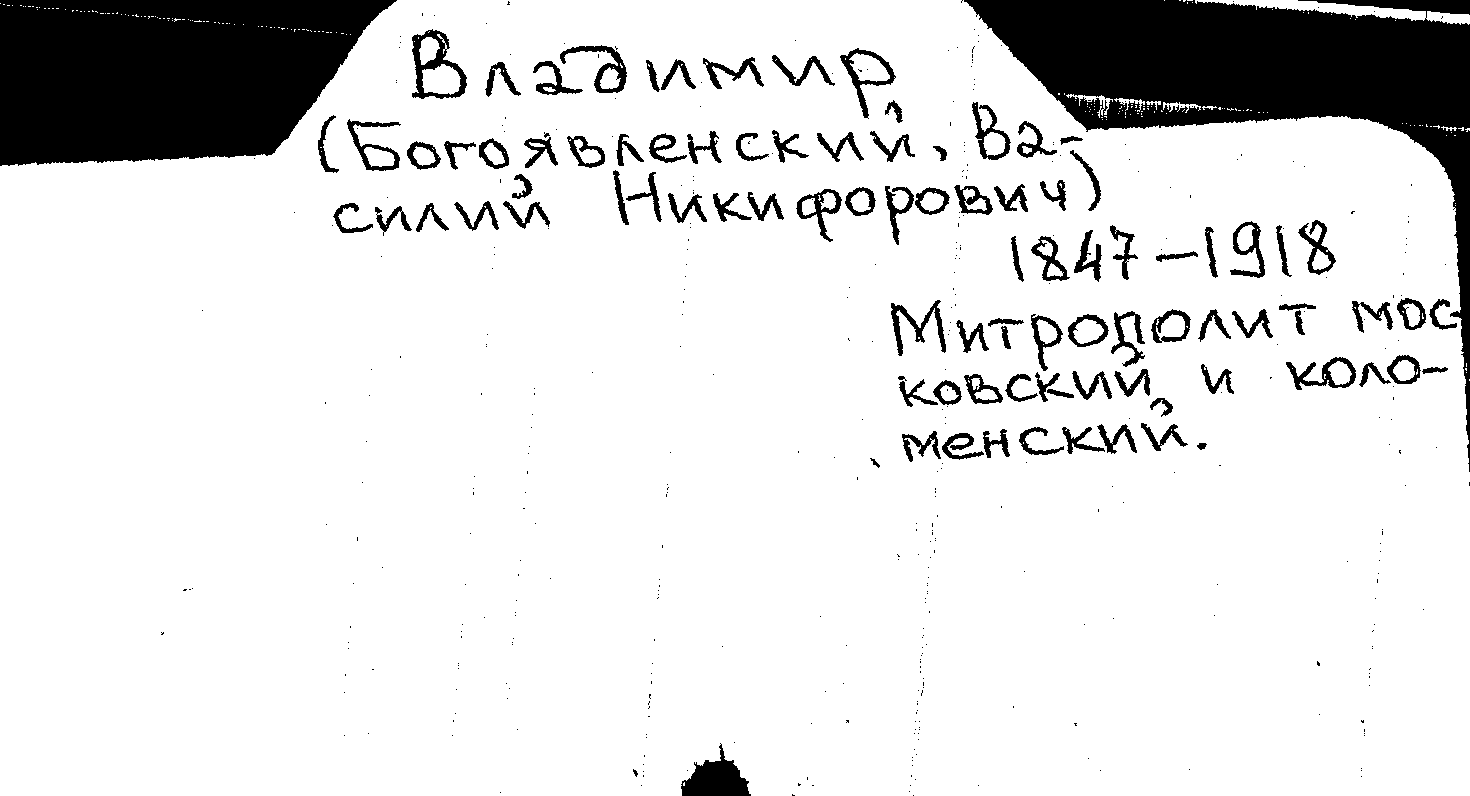 Владимир
(Богоявленский, Ва-
силий Никифорович)
1847-1918
Митрополит мос-
ковский и коло-
менский.